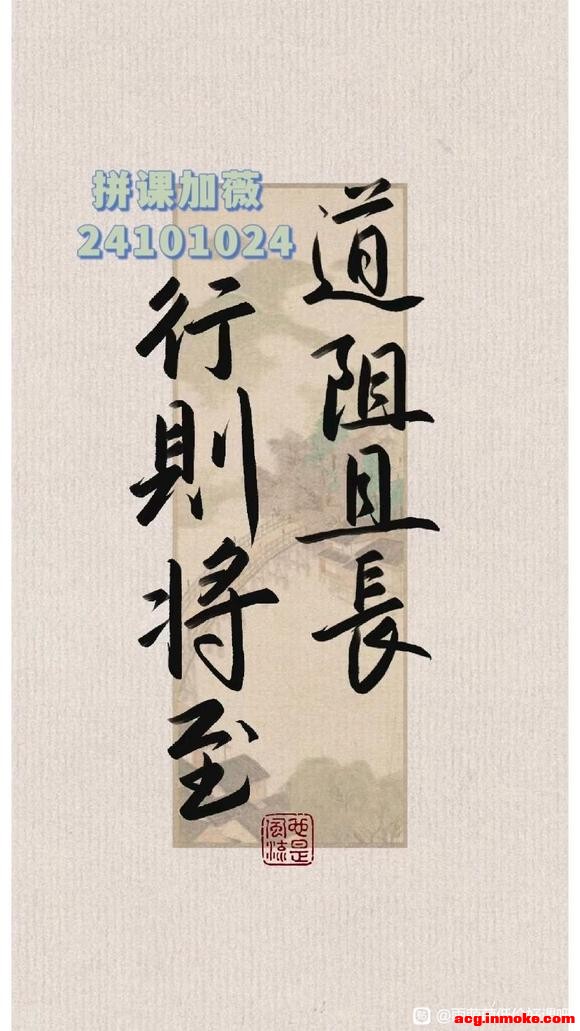 拼课加薇
24101024
道阻且長
行則将至
acg.inmoke.com